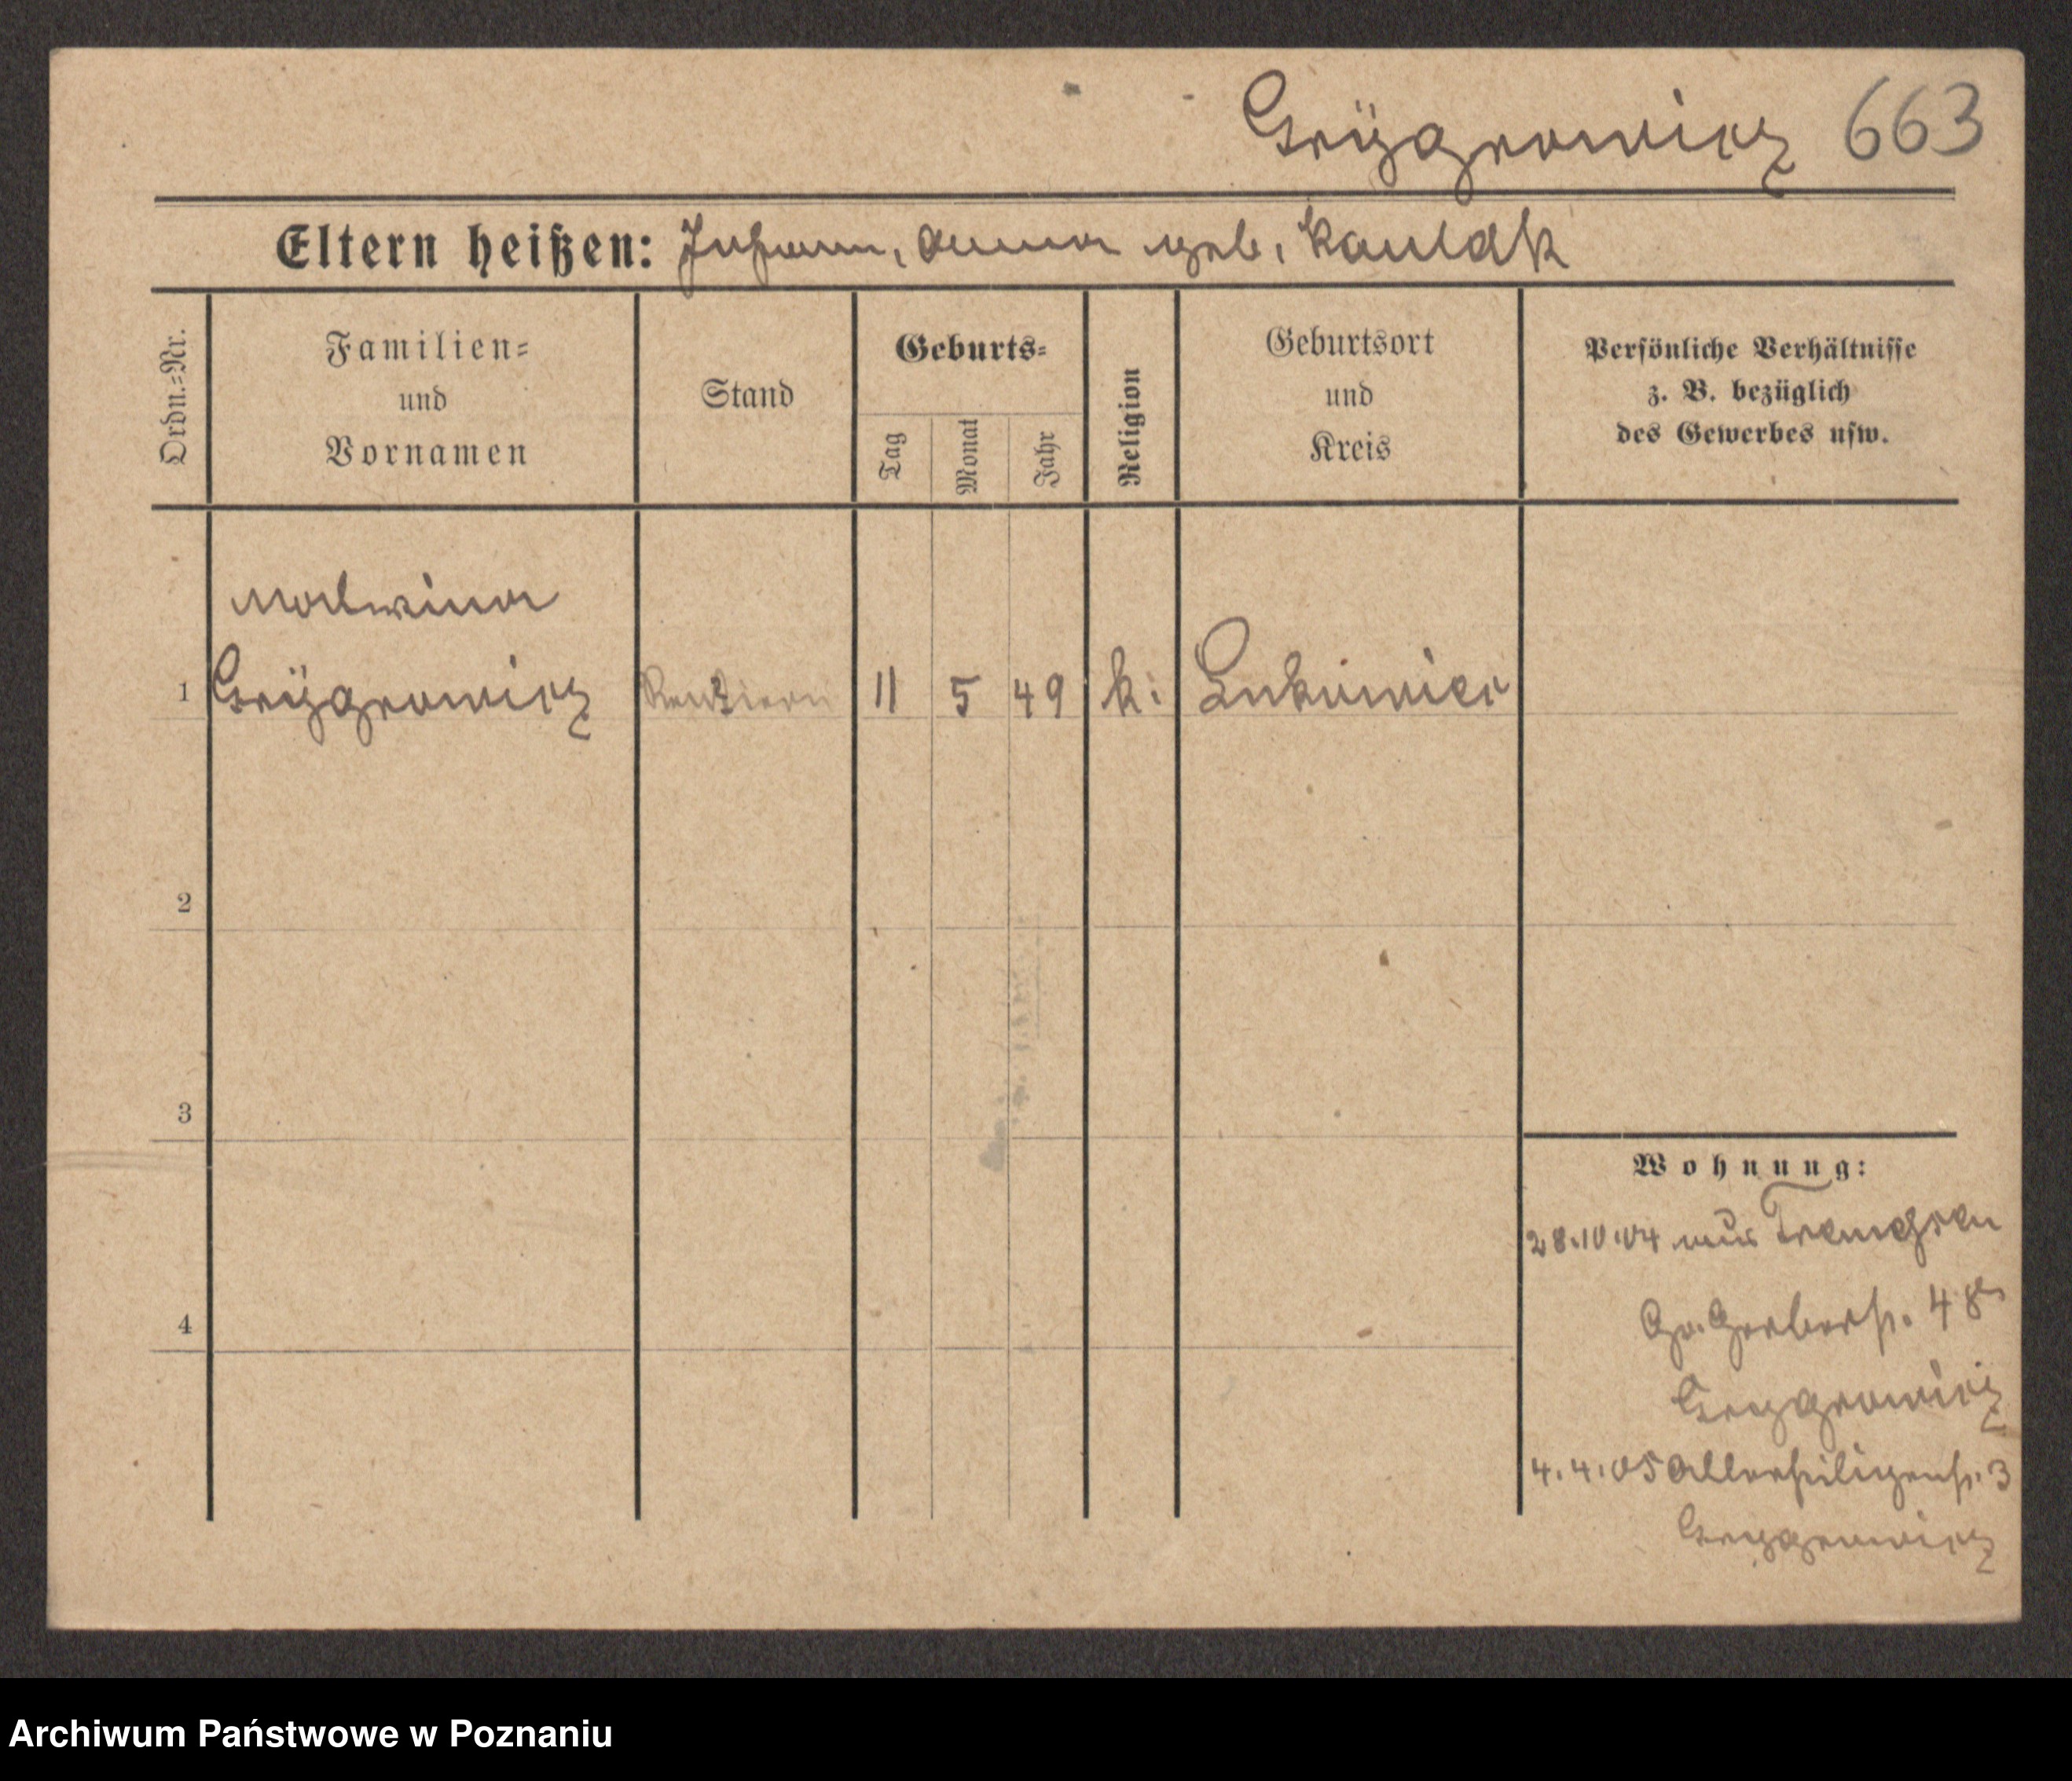 Gryzgrowicz 663
Eltern heißen: Johann, Anna geb. Kauldk
Ordn.=Nr.
Familien=
und
Vornamen
Stand
Geburts=
Tag
Monat
Jahr
Religion
Geburtsort
und
Kreis
Persönliche Verhältnisse
z. B. bezüglich
des Gewerbes usw.
Malwina
1 11 5 49 k.
2
3
4
Wohnung:
28.10.04 aus Tremessen
Gr. Gerberst. 48
4.4.05 Allerheiligenst. 3
Archiwum Państwowe w Poznaniu